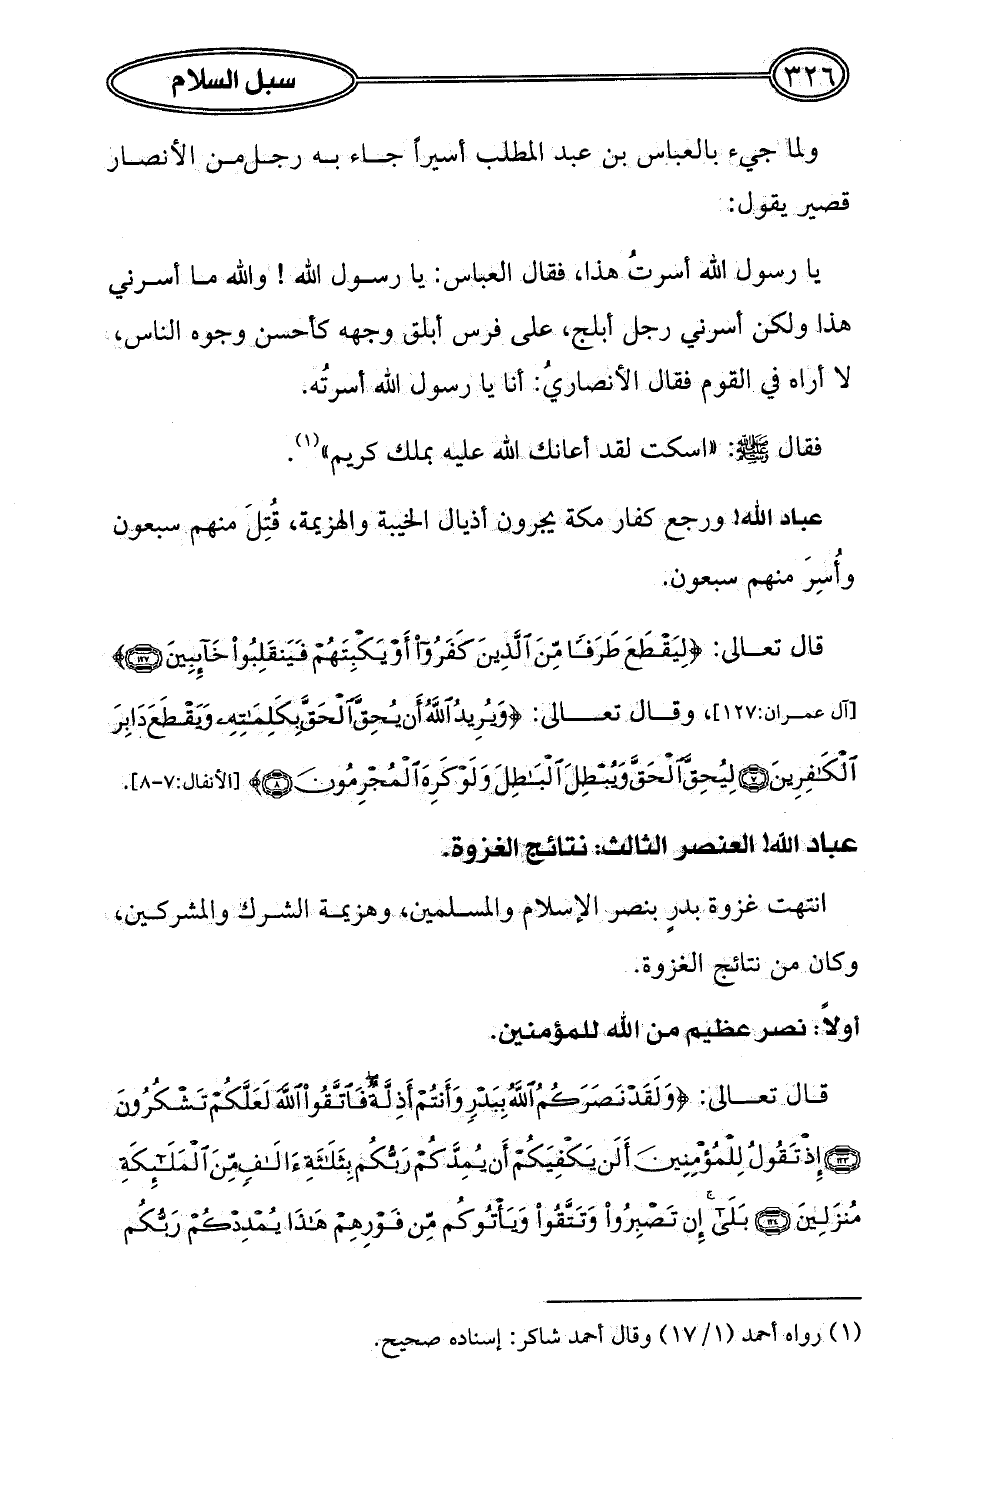 ٣٢٦ سبل السلام
ولما جيء بالعباس بن عبد المطلب أسيراً جاء به رجل من الأنصار
قصير يقول:
يا رسول الله أسرتُ هذا، فقال العباس: يا رسول الله ! والله ما أسرني
هذا ولكن أسرني رجل أبلج، على فرس أبلق وجهه كأحسن وجوه الناس،
لا أراه في القوم فقال الأنصاريُ: أنا يا رسول الله أسرتُه.
فقال ﷺ: «اسكت لقد أعانك الله عليه بملك كريم»(١).
عباد الله! ورجع كفار مكة يجرون أذيال الخيبة والهزيمة، قُتِلَ منهم سبعون
وأُسِرَ منهم سبعون.
قال تعالى: ﴿لِيَقْطَعَ طَرَفًا مِّنَ ٱلَّذِينَ كَفَرُوٓا۟ أَوْ يَكْبِتَهُمْ فَيَنقَلِبُوا۟ خَآئِبِينَ ١٢٧﴾
[آل عمران:١٢٧]، وقال تعالى: ﴿وَيُرِيدُ ٱللَّهُ أَن يُحِقَّ ٱلْحَقَّ بِكَلِمَـٰتِهِۦ وَيَقْطَعَ دَابِرَ
ٱلْكَـٰفِرِينَ ٧ لِيُحِقَّ ٱلْحَقَّ وَيُبْطِلَ ٱلْبَـٰطِلَ وَلَوْ كَرِهَ ٱلْمُجْرِمُونَ ٨﴾ [الأنفال:٧-٨].
عباد الله! العنصر الثالث: نتائج الغزوة.
انتهت غزوة بدرٍ بنصر الإسلام والمسلمين، وهزيمة الشرك والمشركين،
وكان من نتائج الغزوة.
أولاً: نصر عظيم من الله للمؤمنين.
قال تعالى: ﴿وَلَقَدْ نَصَرَكُمُ ٱللَّهُ بِبَدْرٍ وَأَنتُمْ أَذِلَّةٌ ۖ فَٱتَّقُوا۟ ٱللَّهَ لَعَلَّكُمْ تَشْكُرُونَ
١٢٣ إِذْ تَقُولُ لِلْمُؤْمِنِينَ أَلَن يَكْفِيَكُمْ أَن يُمِدَّكُمْ رَبُّكُم بِثَلَـٰثَةِ ءَالَـٰفٍ مِّنَ ٱلْمَلَـٰٓئِكَةِ
مُنزَلِينَ ١٢٤ بَلَىٰٓ ۚ إِن تَصْبِرُوا۟ وَتَتَّقُوا۟ وَيَأْتُوكُم مِّن فَوْرِهِمْ هَـٰذَا يُمْدِدْكُمْ رَبُّكُم
(١) رواه أحمد (١٧/١) وقال أحمد شاكر: إسناده صحيح.